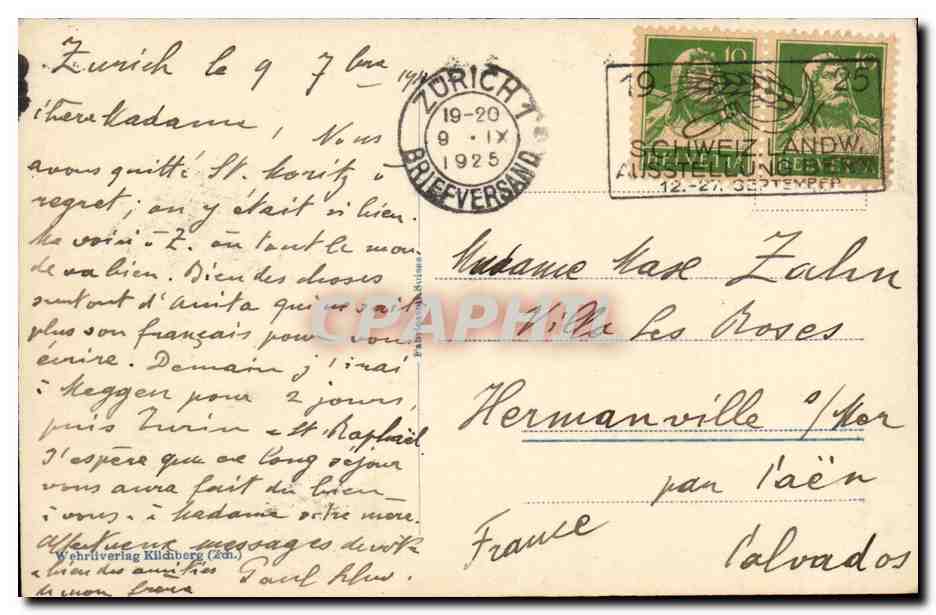 Zurich le 9 7bre
Chère Madame! Nous
avons quitté St. Moritz à
regret; on y était si bien.
Me voici à Z. où tout le mon-
de va bien. Bien des choses
surtout d'Anita qui ne sait
plus son français pour vous
écrire. Demain j'irai
à Meggen pour 2 jours,
puis Turin - St. Raphaël
J'espère que ce long séjour
vous aura fait du bien
à vous - à Madame votre mère.
Affectueux messages de votre
bien des amitiés Paul
de mon frère
Wehrliverlag Kilchberg (Zch.)
ZÜRICH 1
19-20
9 · IX
1925
BRIEFVERSAND
10 10
HELVETIA HELVETIA
19 25
SCHWEIZ. LANDW.
AUSSTELLUNG BERN
12.-27. SEPTEMBER
Madame Max Zahn
Villa Les Roses
Hermanville s/Mer
par Caën
France
Calvados
CPAPHIL